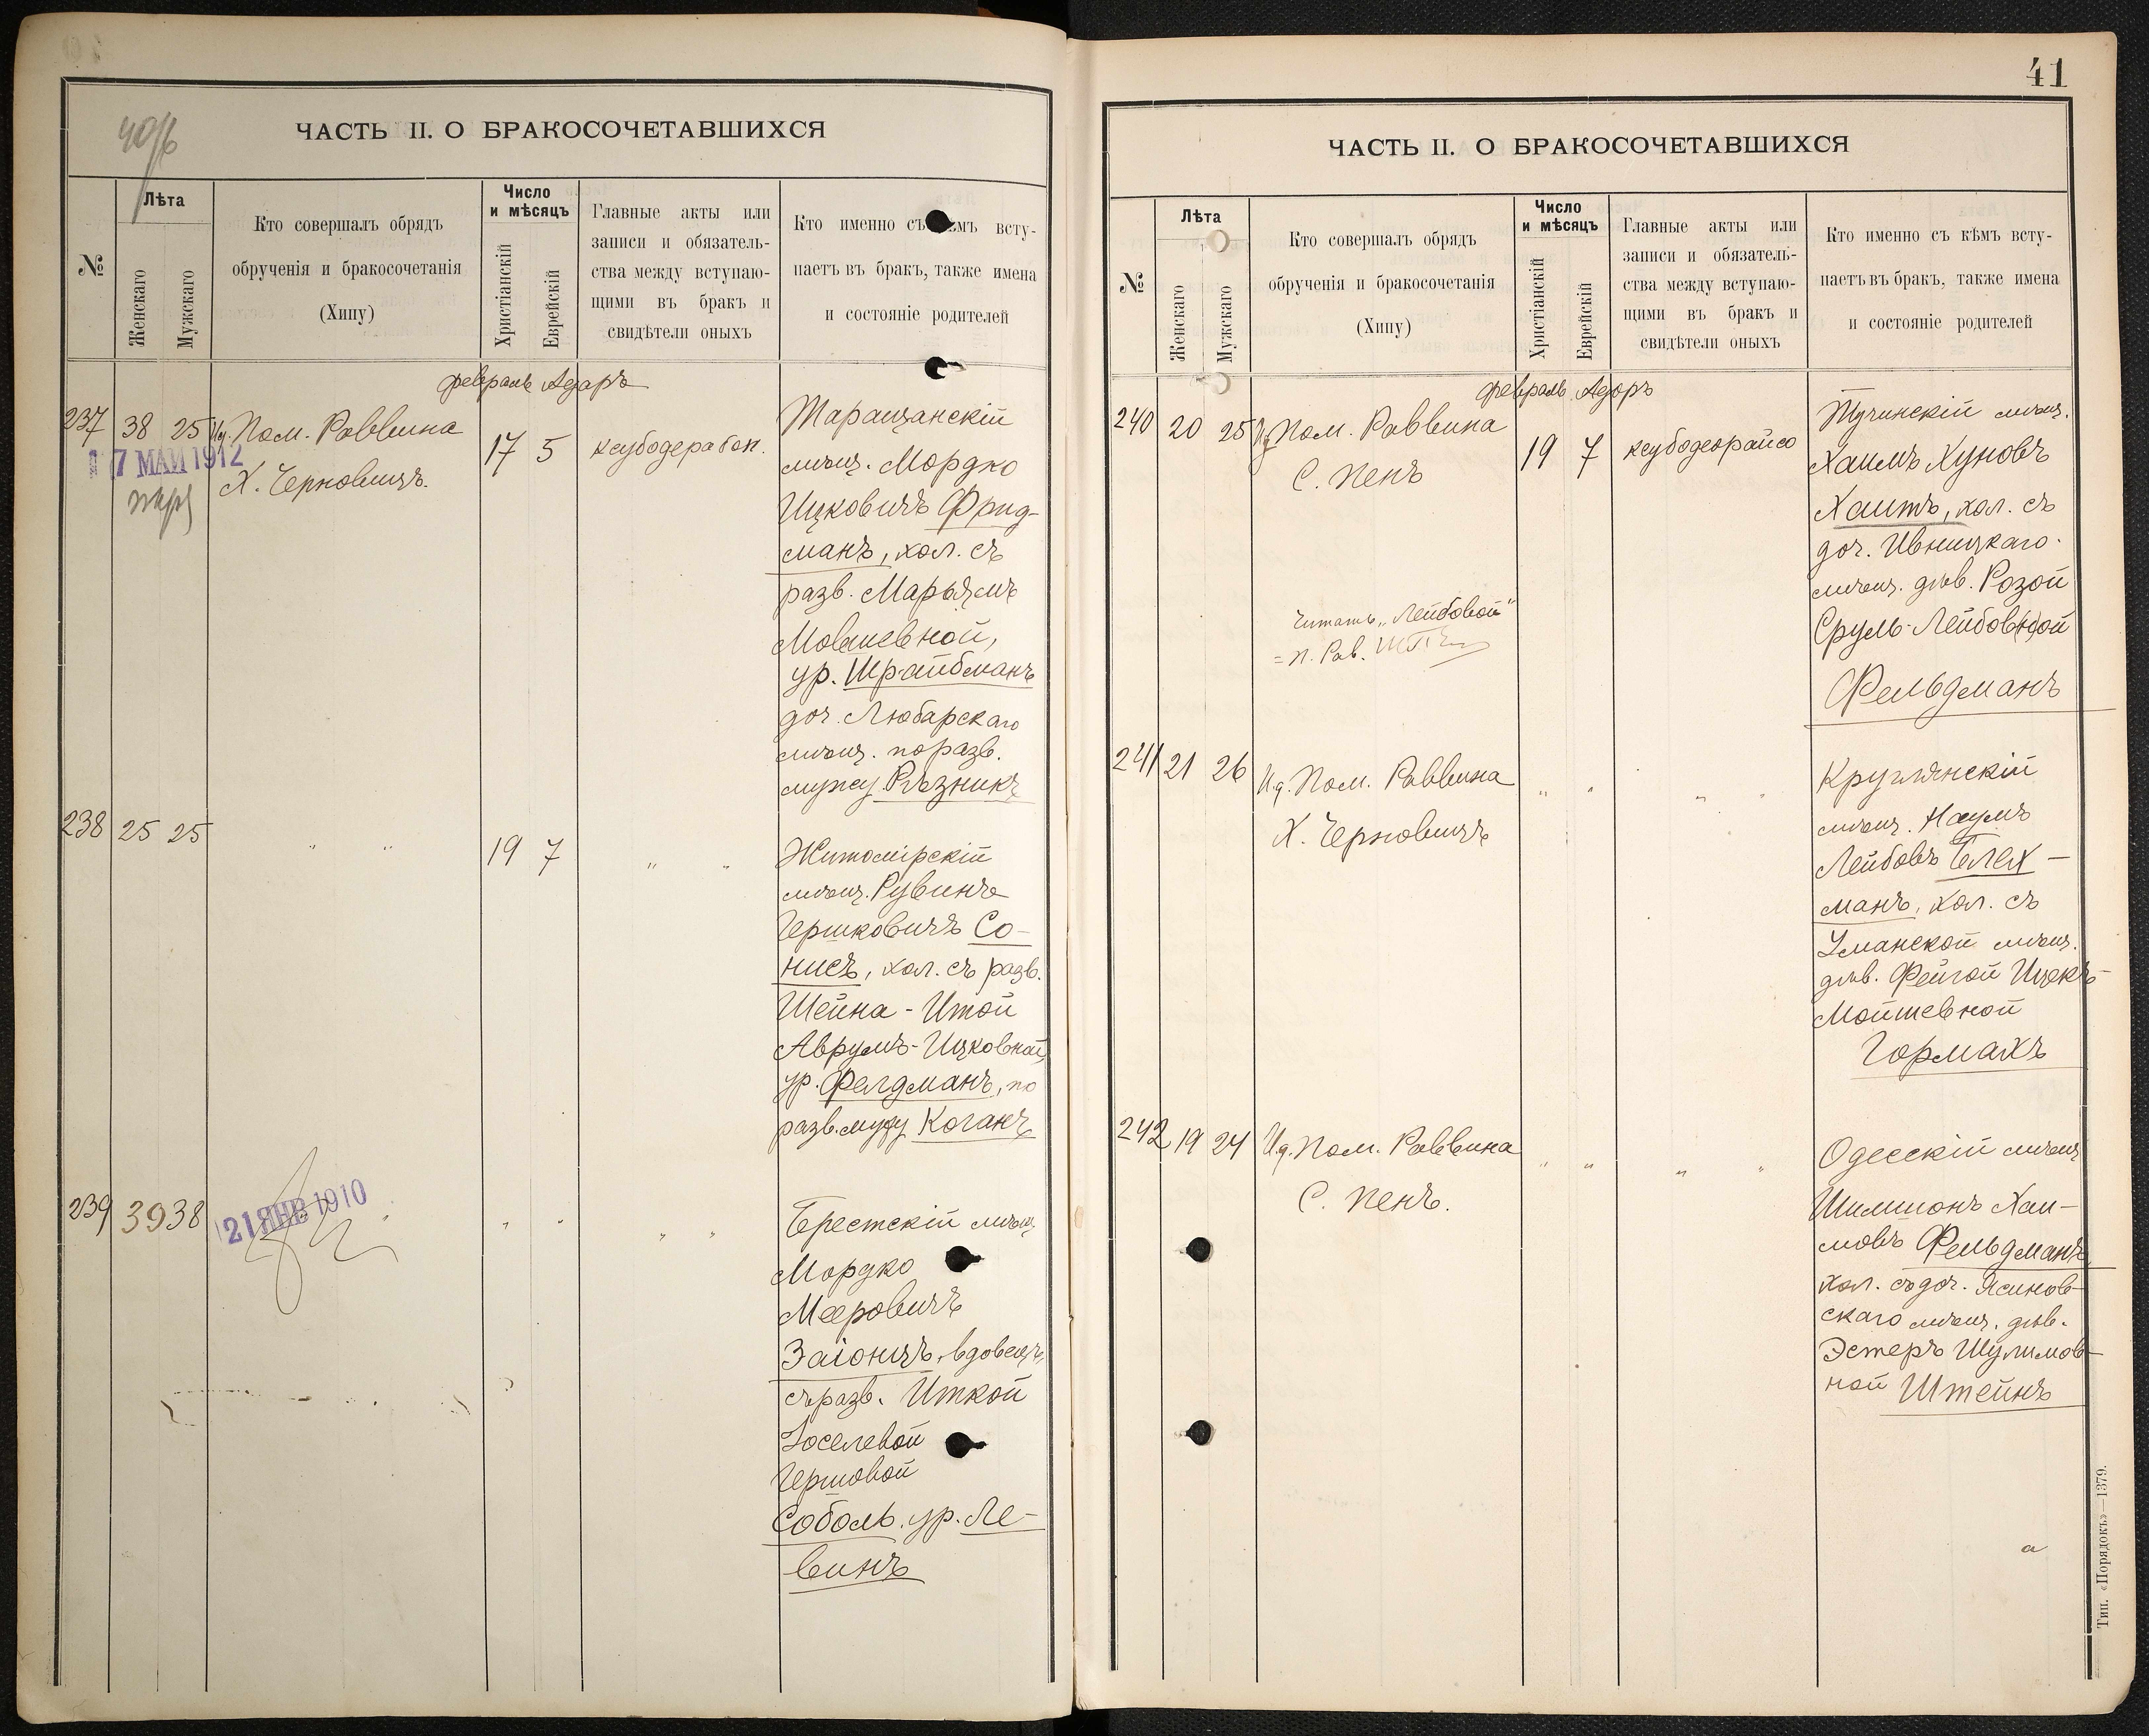 40/б
ЧАСТЬ II. О БРАКОСОЧЕТАВШИХСЯ
№
Лѣта
Женскаго
Мужскаго
Кто совершалъ обрядъ
обрученія и бракосочетанія
(Хипу)
Число
и мѣсяцъ
Христіанскій
Еврейскій
Главные акты или
записи и обязатель-
ства между вступаю-
щими въ бракъ и
свидѣтели оныхъ
Кто именно съ кѣмъ всту-
паетъ въ бракъ, также имена
и состояніе родителей
февраль Адаръ
237 38 25 Ид. Пом. Раввина
Х. Черновичъ.
17 МАЙ 1912
17 5
Таращанскій
мѣщ. Мордко
Ицковичъ Фрид-
манъ, хол. съ
разв. Марьямъ
Мовшевной,
ур. Шрайбманъ
доч. Любарскаго
мѣщ. по разв.
мужу Рѣзникъ
238 25 25 " " 19 7 " "
Житомірскій
мѣщ. Рувинъ
Гершковичъ Со-
нисъ, хол. съ разв.
Шейна-Итой
Аврумъ-Ицковной,
ур. Фелдманъ, по
разв. мужу Коганъ
239 39 38 " " " "
21 ЯНВ 1910
Брестскій мѣщ.
Мордко
Мееровичъ
Заіонцъ, вдовецъ,
съ разв. Иткой
Іоселевой
Гершовой
Соболь, ур. Ле-
винъ
41
ЧАСТЬ II. О БРАКОСОЧЕТАВШИХСЯ
№
Лѣта
Женскаго
Мужскаго
Кто совершалъ обрядъ
обрученія и бракосочетанія
(Хипу)
Число
и мѣсяцъ
Христіанскій
Еврейскій
Главные акты или
записи и обязатель-
ства между вступаю-
щими въ бракъ и
свидѣтели оныхъ
Кто именно съ кѣмъ всту-
паетъ въ бракъ, также имена
и состояніе родителей
февраль Адоръ
240 20 25 Ид Пом. Раввина
С. Пенъ
19 7 ксубодеорайсо
Тучинскій мѣщ.
Хаимъ Хуновъ
Хаитъ, хол. съ
доч. Ивницкаго
мѣщ. дѣв. Розой
Сруль-Лейбов(н)ой
Фельдманъ
Читать „Лейбовой"
=П. Рав.
241 21 26 И.д. Пом. Раввина
Х. Черновичъ
" " " "
Круглянскій
мѣщ. Наумъ
Лейбовъ Блех-
манъ, хол. съ
Уманской мѣщ.
дѣв. Фейгой Ицекъ-
Мойшевной
Гормахъ
242 19 24 И.д. Пом. Раввина
С. Пенъ.
" " " "
Одесскій мѣщ
Шимшонъ Хаи-
мовъ Фельдманъ,
хол. съ доч. Яснов-
скаго мѣщ. дѣв.
Эстеръ Шулимов-
ной Штейнъ
а
Тип. «Порядокъ»—1379.